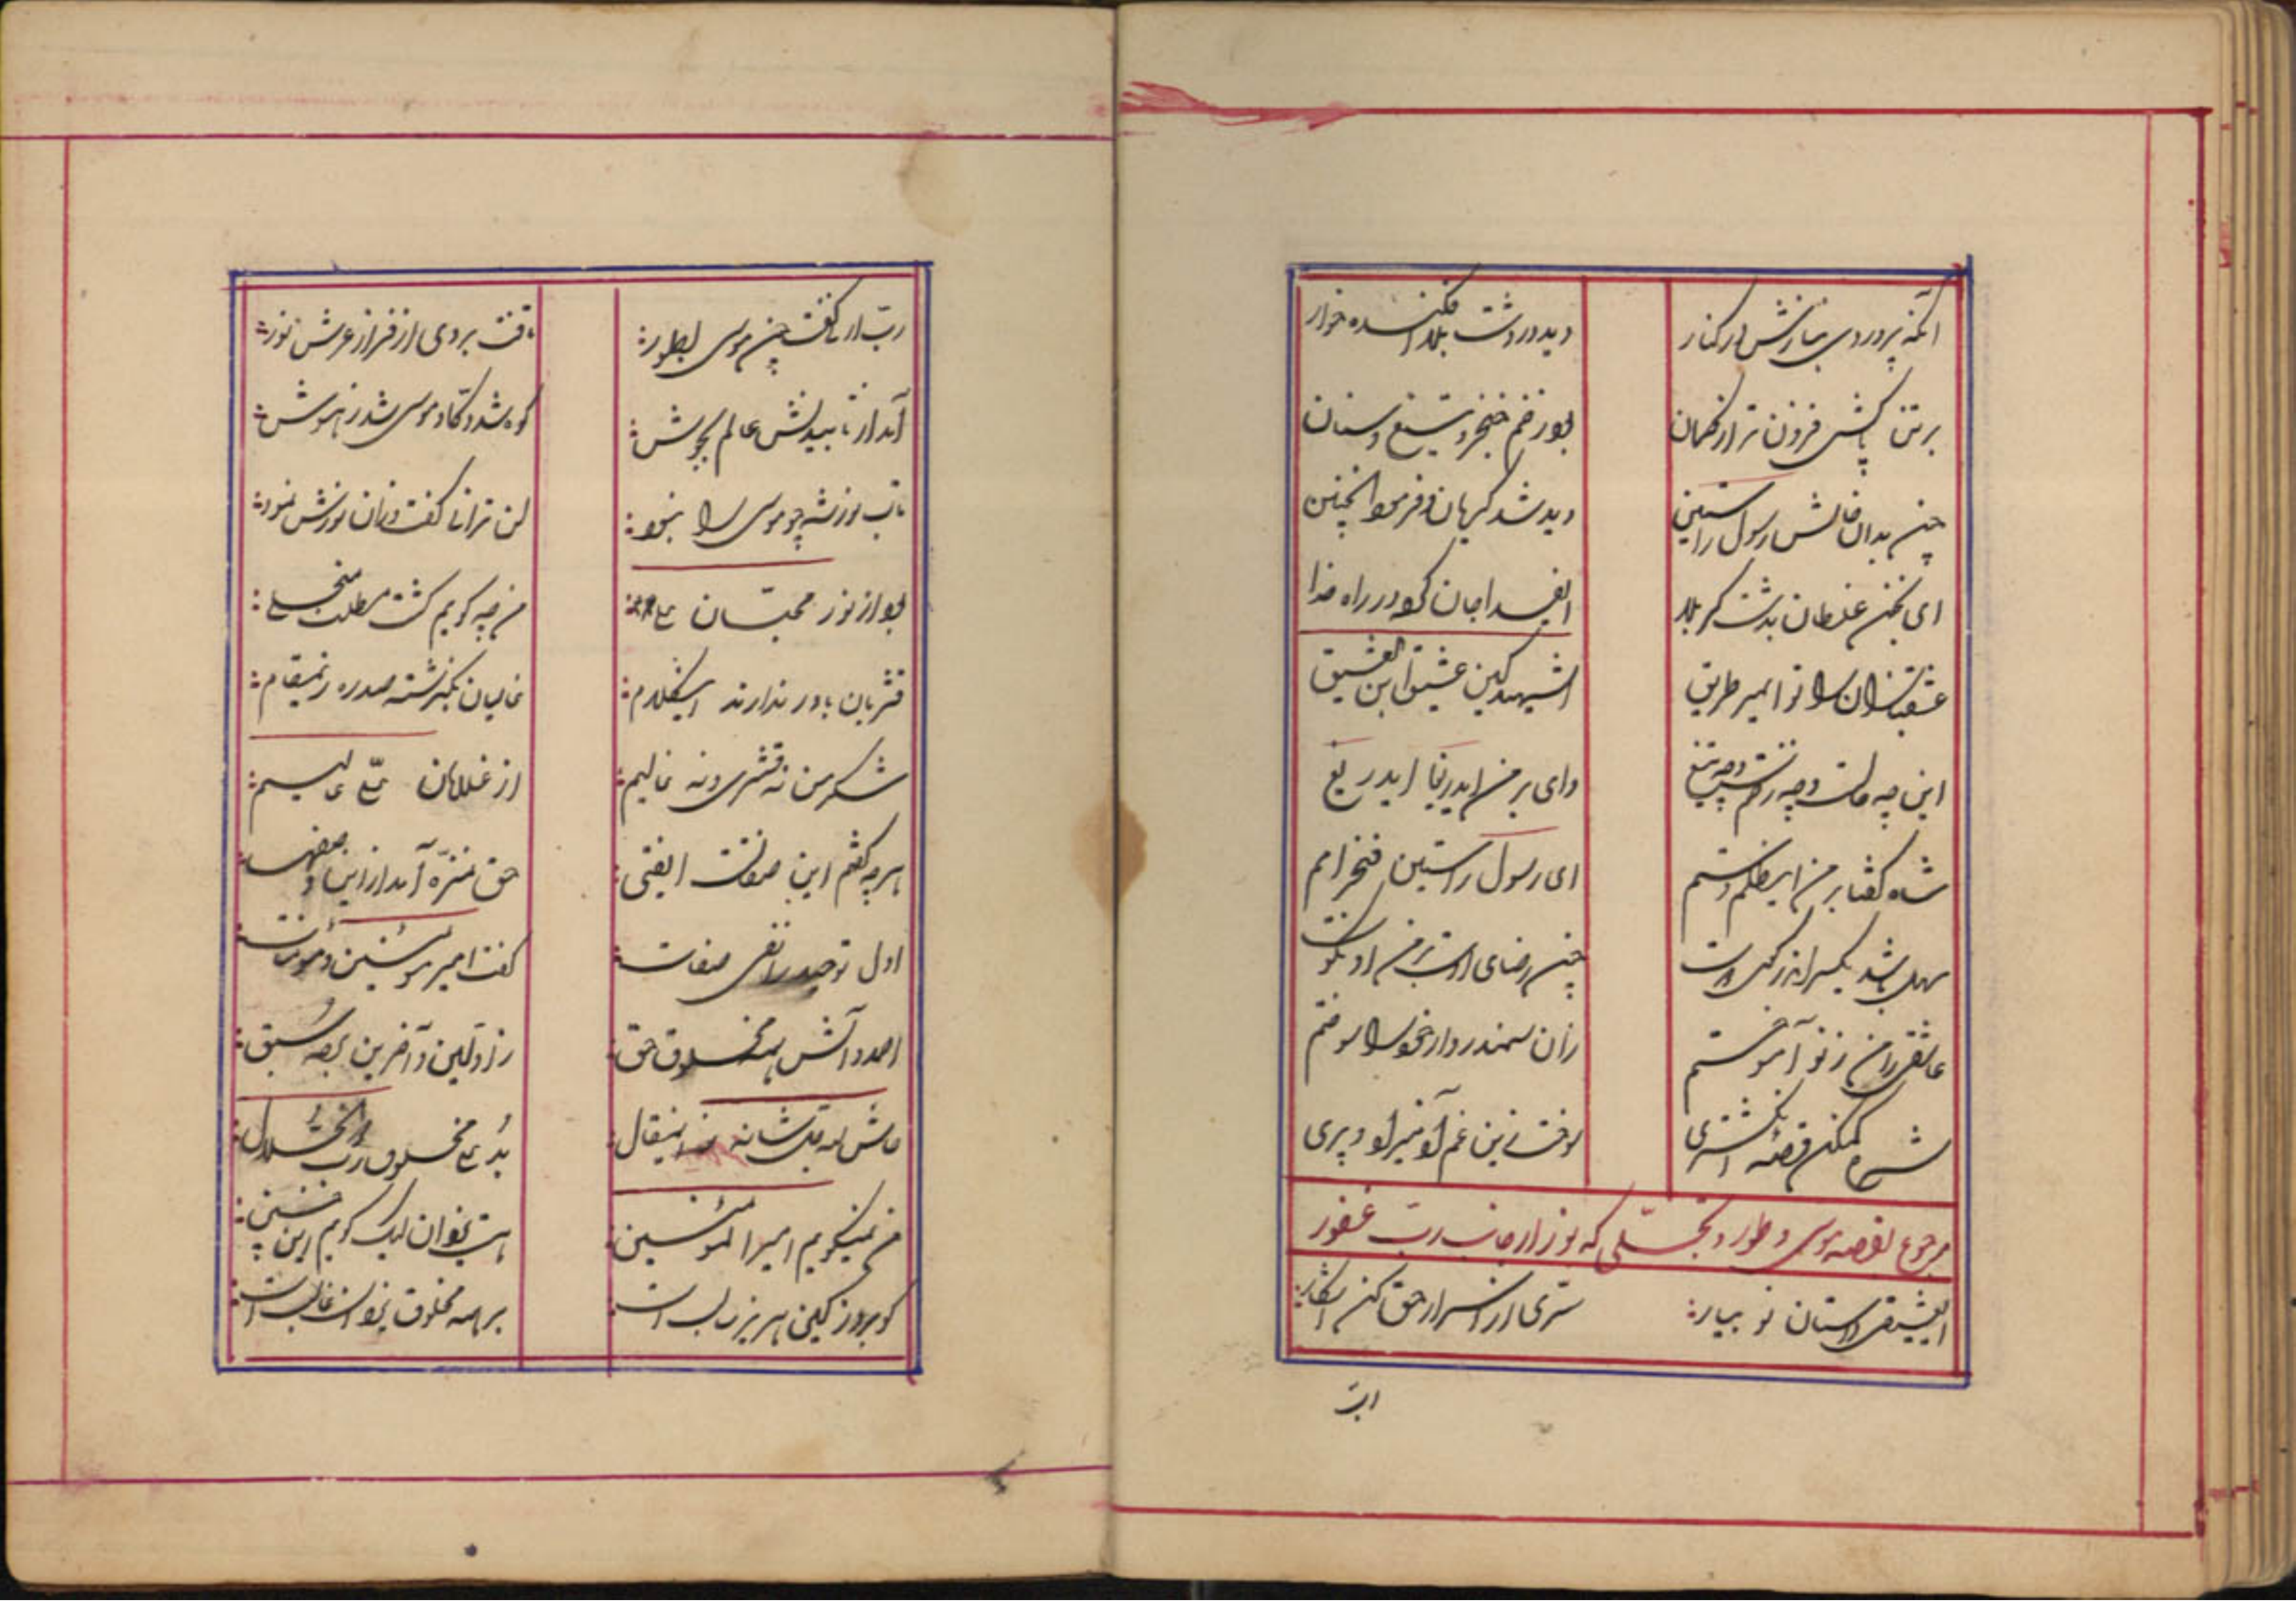 آنکه پروردی بنازش در کنار
دید در دشت بلا افکنده خوار
بر تن پاکش فزون تر از گمان
بود زخم خنجر و تیغ و سنان
چون بدان حالش رسول راستین
دید شد گریان و فرمود اینچنین
ای بخون غلطان بدشت کربلا
ایفدا جان کرده در راه خدا
عشقبازان را تو ای میر طریق
الشهید کمن عشیق ابن العشیق
این چه حالت و چه زخمست و چه تیغ
وای بر من ای دریغا ای دریغ
شاه گفتا بر من این ظلم و ستم
ای رسول راستین فخر امم
سهل باشد یکسر
چون رضای اوست از من او نکوست
عاشقی را من ز تو آموختم
زان سمندر وار خود را سوختم
شرح کم کن قصه انگشتری
سوخت زین غم آدمیزاد و پری
مرجوع بقصه موسی و طور و تجلی که نور از جانب رب غفور
ایعشیقی داستان نو بیار
سری از اسرار حق کن آشکار
ابت
رب ارنی گفت چون موسی بطور
تافت بروی از فراز عرش نور
آمد از تابیدنش عالم بجوش
کوه شد دکا و موسی شد ز هوش
تاب نورش چو موسی را نبود
لن ترانی گفت و زان نورش نمود
بود از نور محبان علی
من چه گویم گشت مطلب منجلی
قشریان باور ندارند این کلام
غالیان بگذشته صد ره زین مقام
شکر من نه قشری و نه غالیم
از غلامان علی عالیم
هر چه گفتم این صفاتست ایفتی
حق منزه آمد از این وصفها
اول توحید را نفی صفات
گفت امیر مؤمنین و مؤمنات
احمد و آلش به مخلوق حق
ز اولین و آخرین برده سبق
حاش لله قل شانه زین مقال
بد علی مخلوق رب ذوالجلال
من نمیگویم امیر المؤمنین
هست یزدان لیک گویم این چنین
کو بروز کین هژبر غالب است
بر همه مخلوق یزدان غالب است